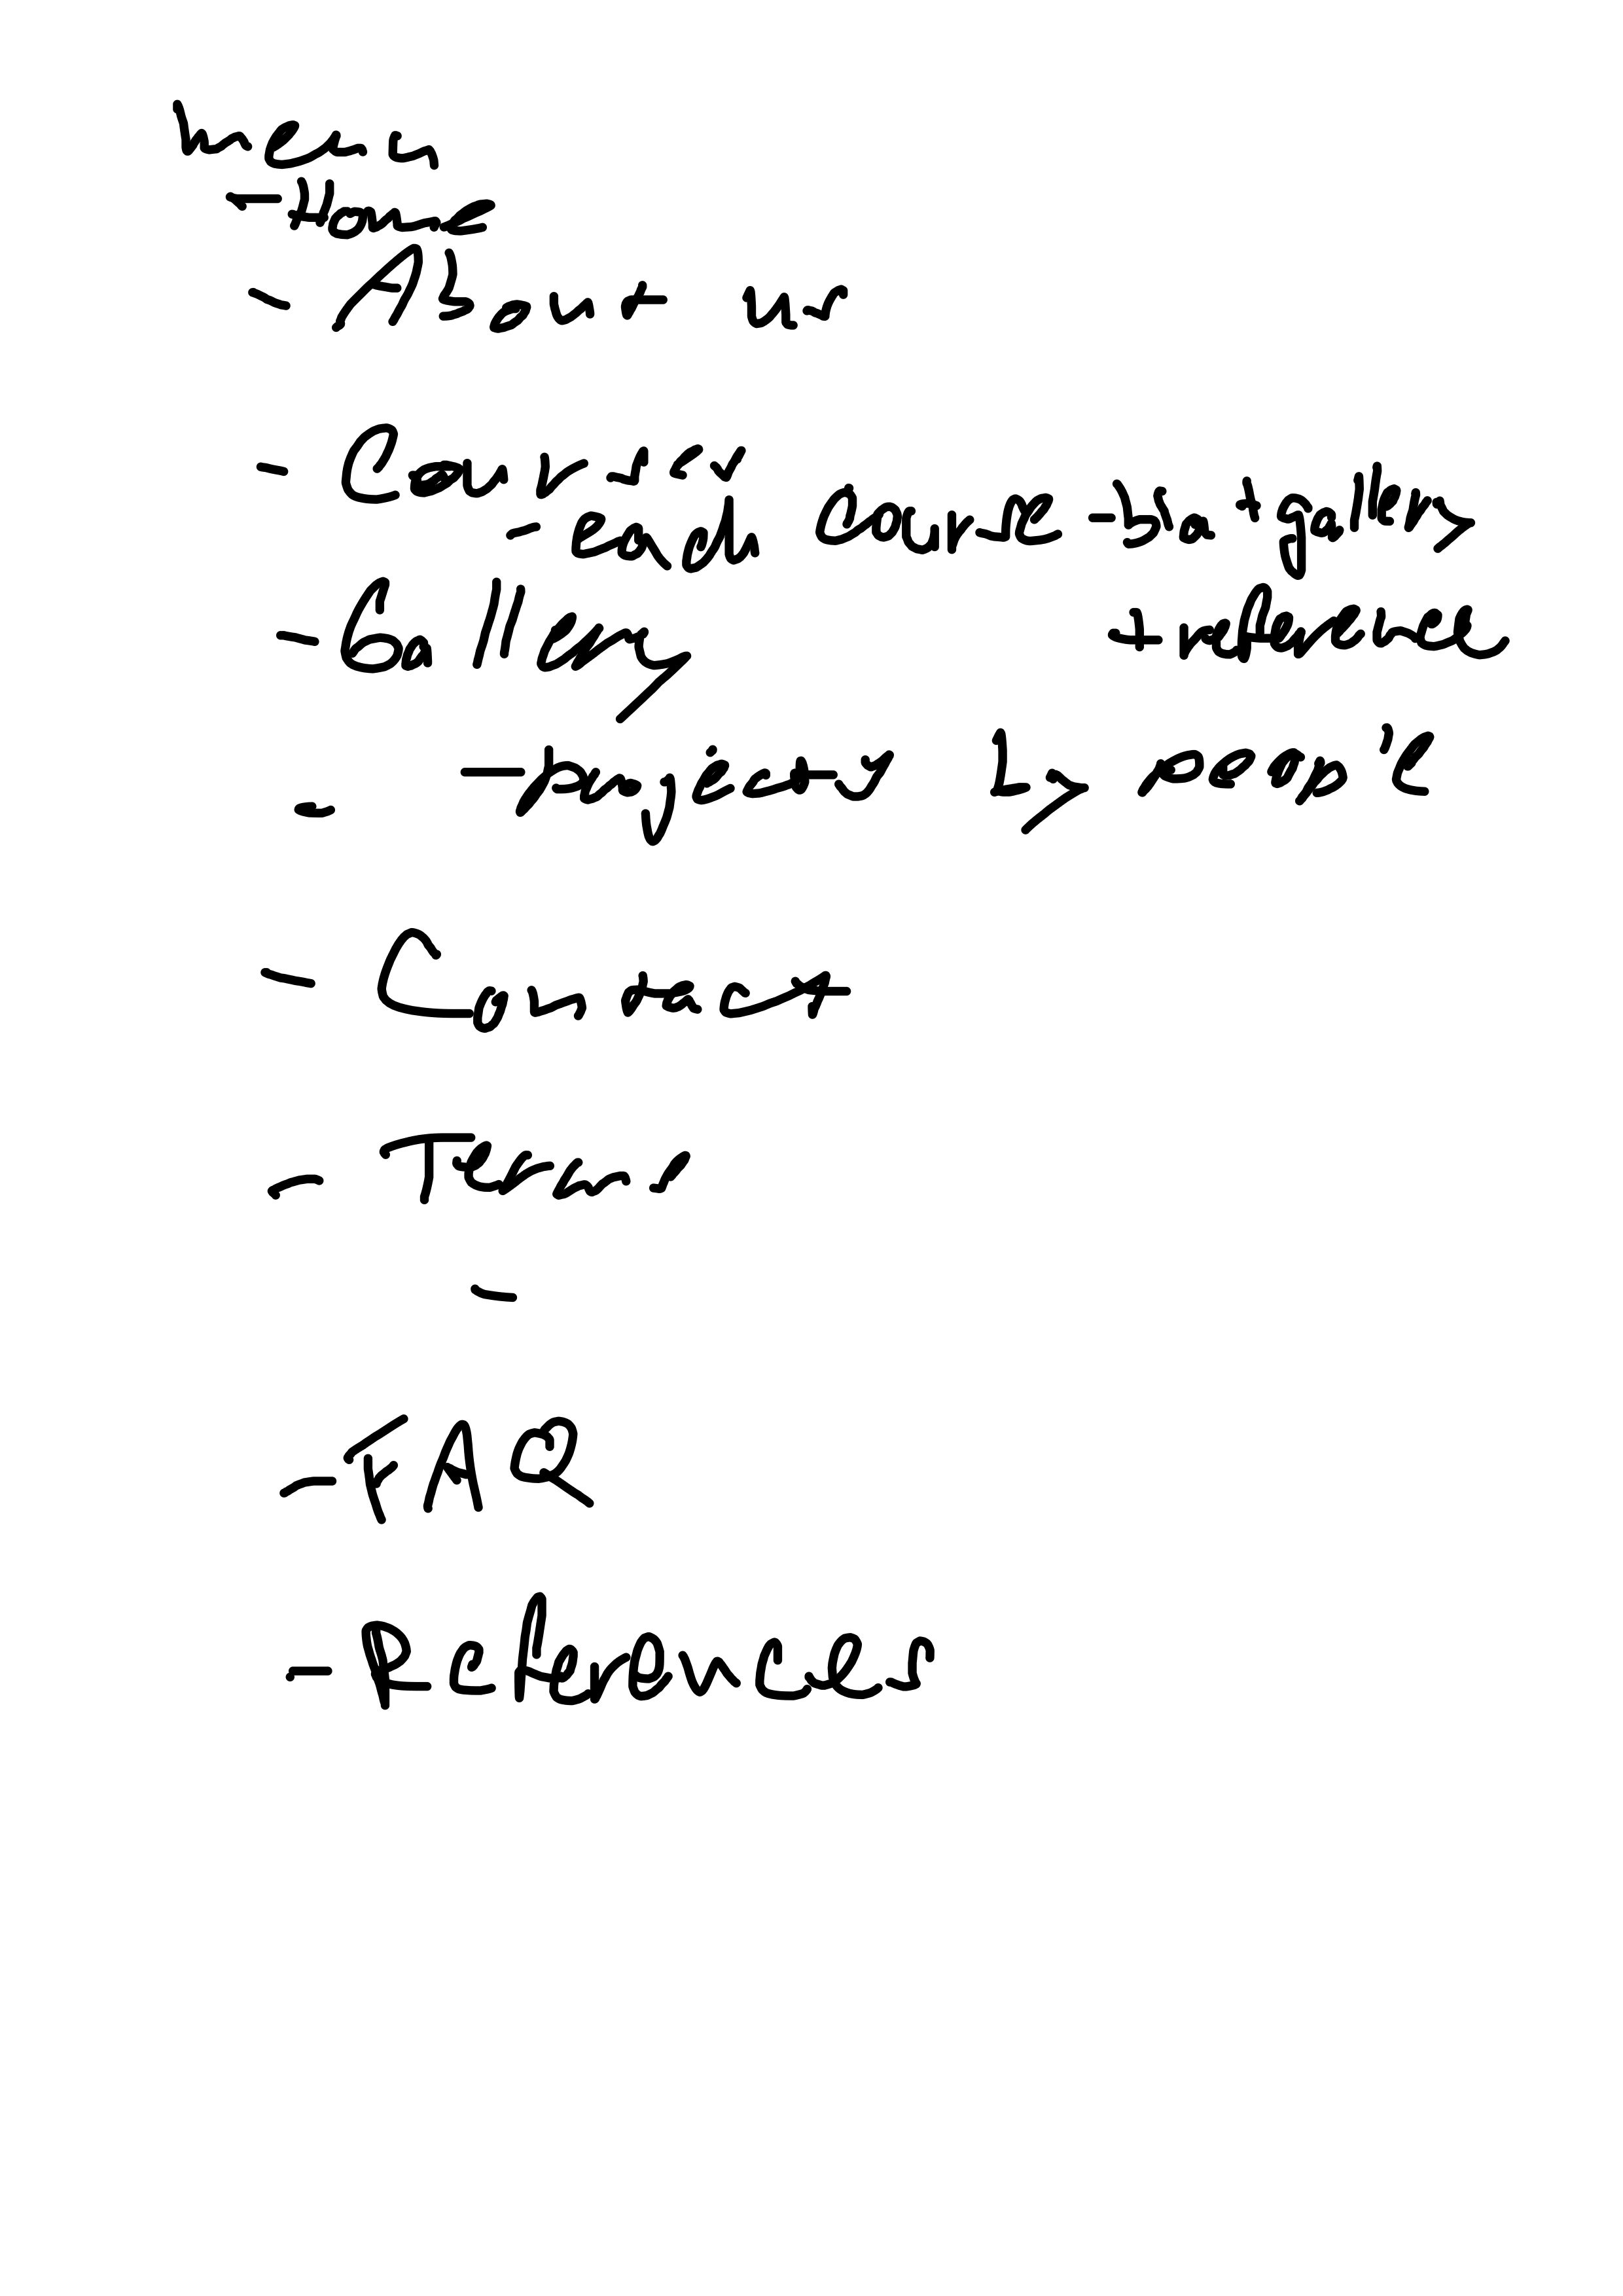 Menu
- Home
- About us
- Courses
- each course - + gallery
- Gallery + reference
- projects by people
-
- Contact
- Terms
-
- FAQ
- References